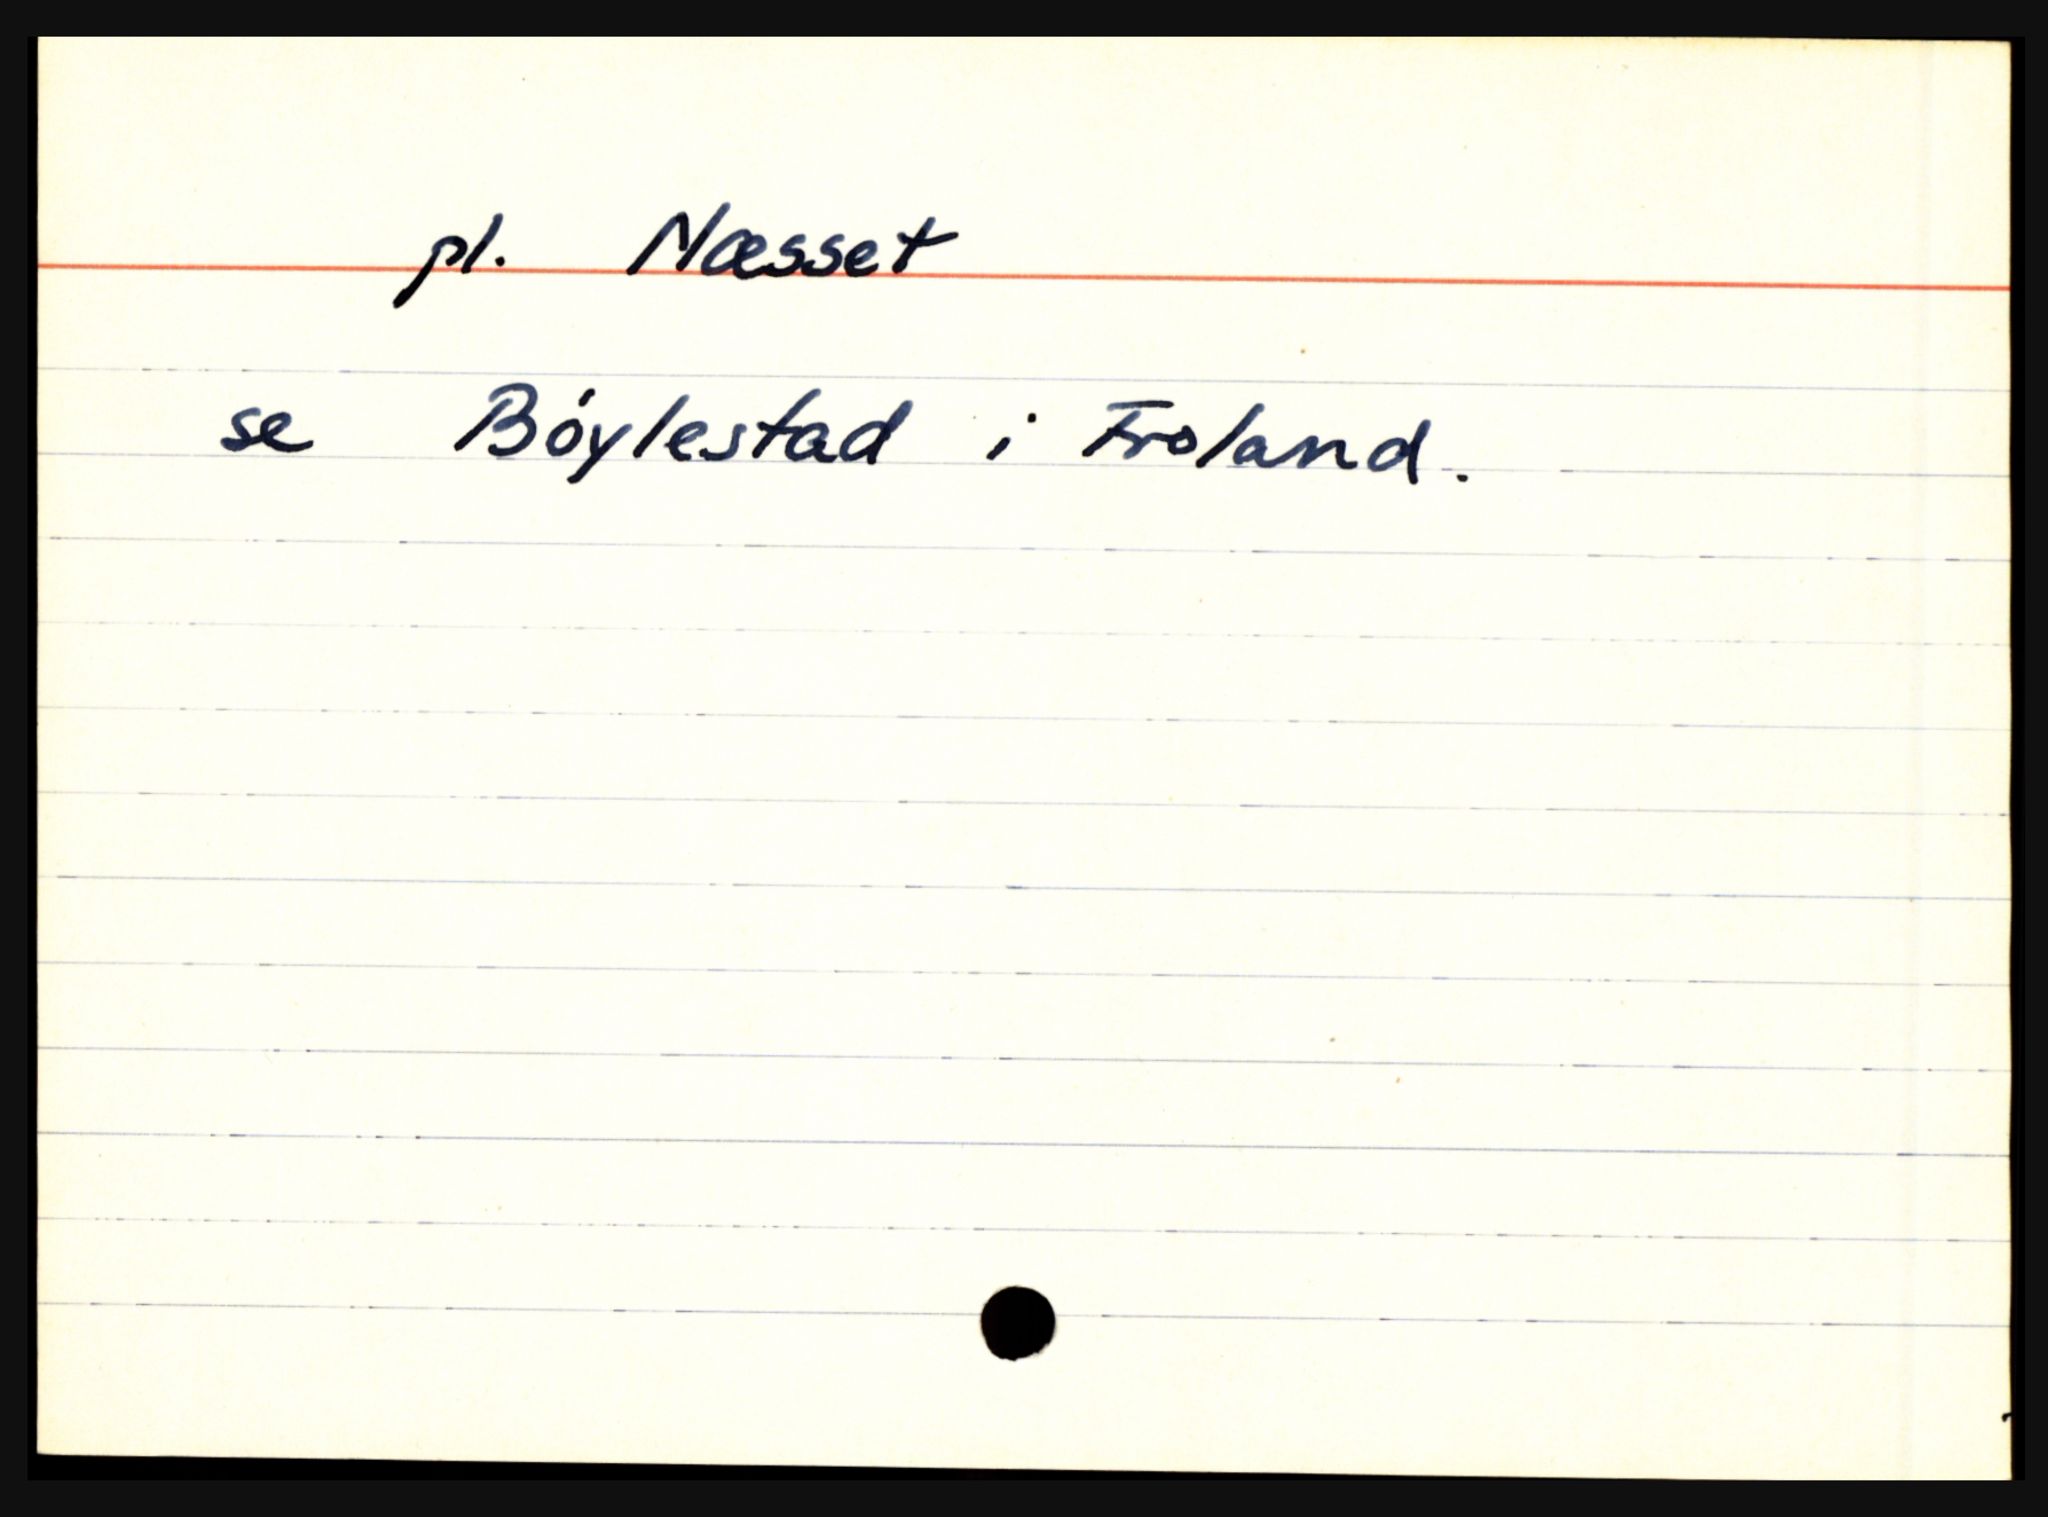 pl. Næsset
se Bóylestad i Froland.